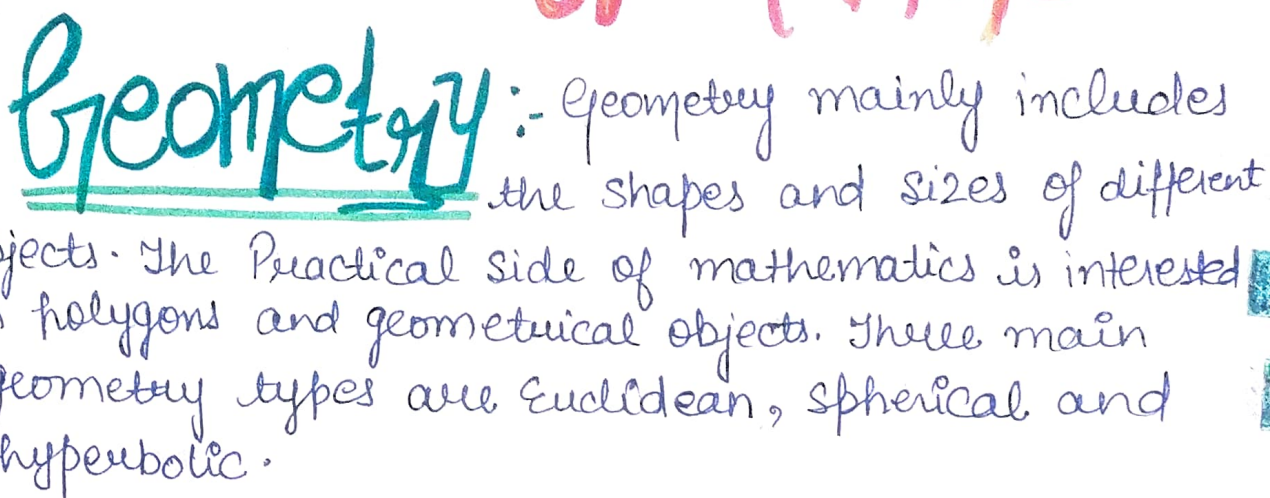 Geometry :- Geometry mainly includes
the shapes and sizes of different
jects. The Practical side of mathematics is interested
polygons and geometrical objects. Three main
eometry types are Euclidean, spherical and
hyperbolic.